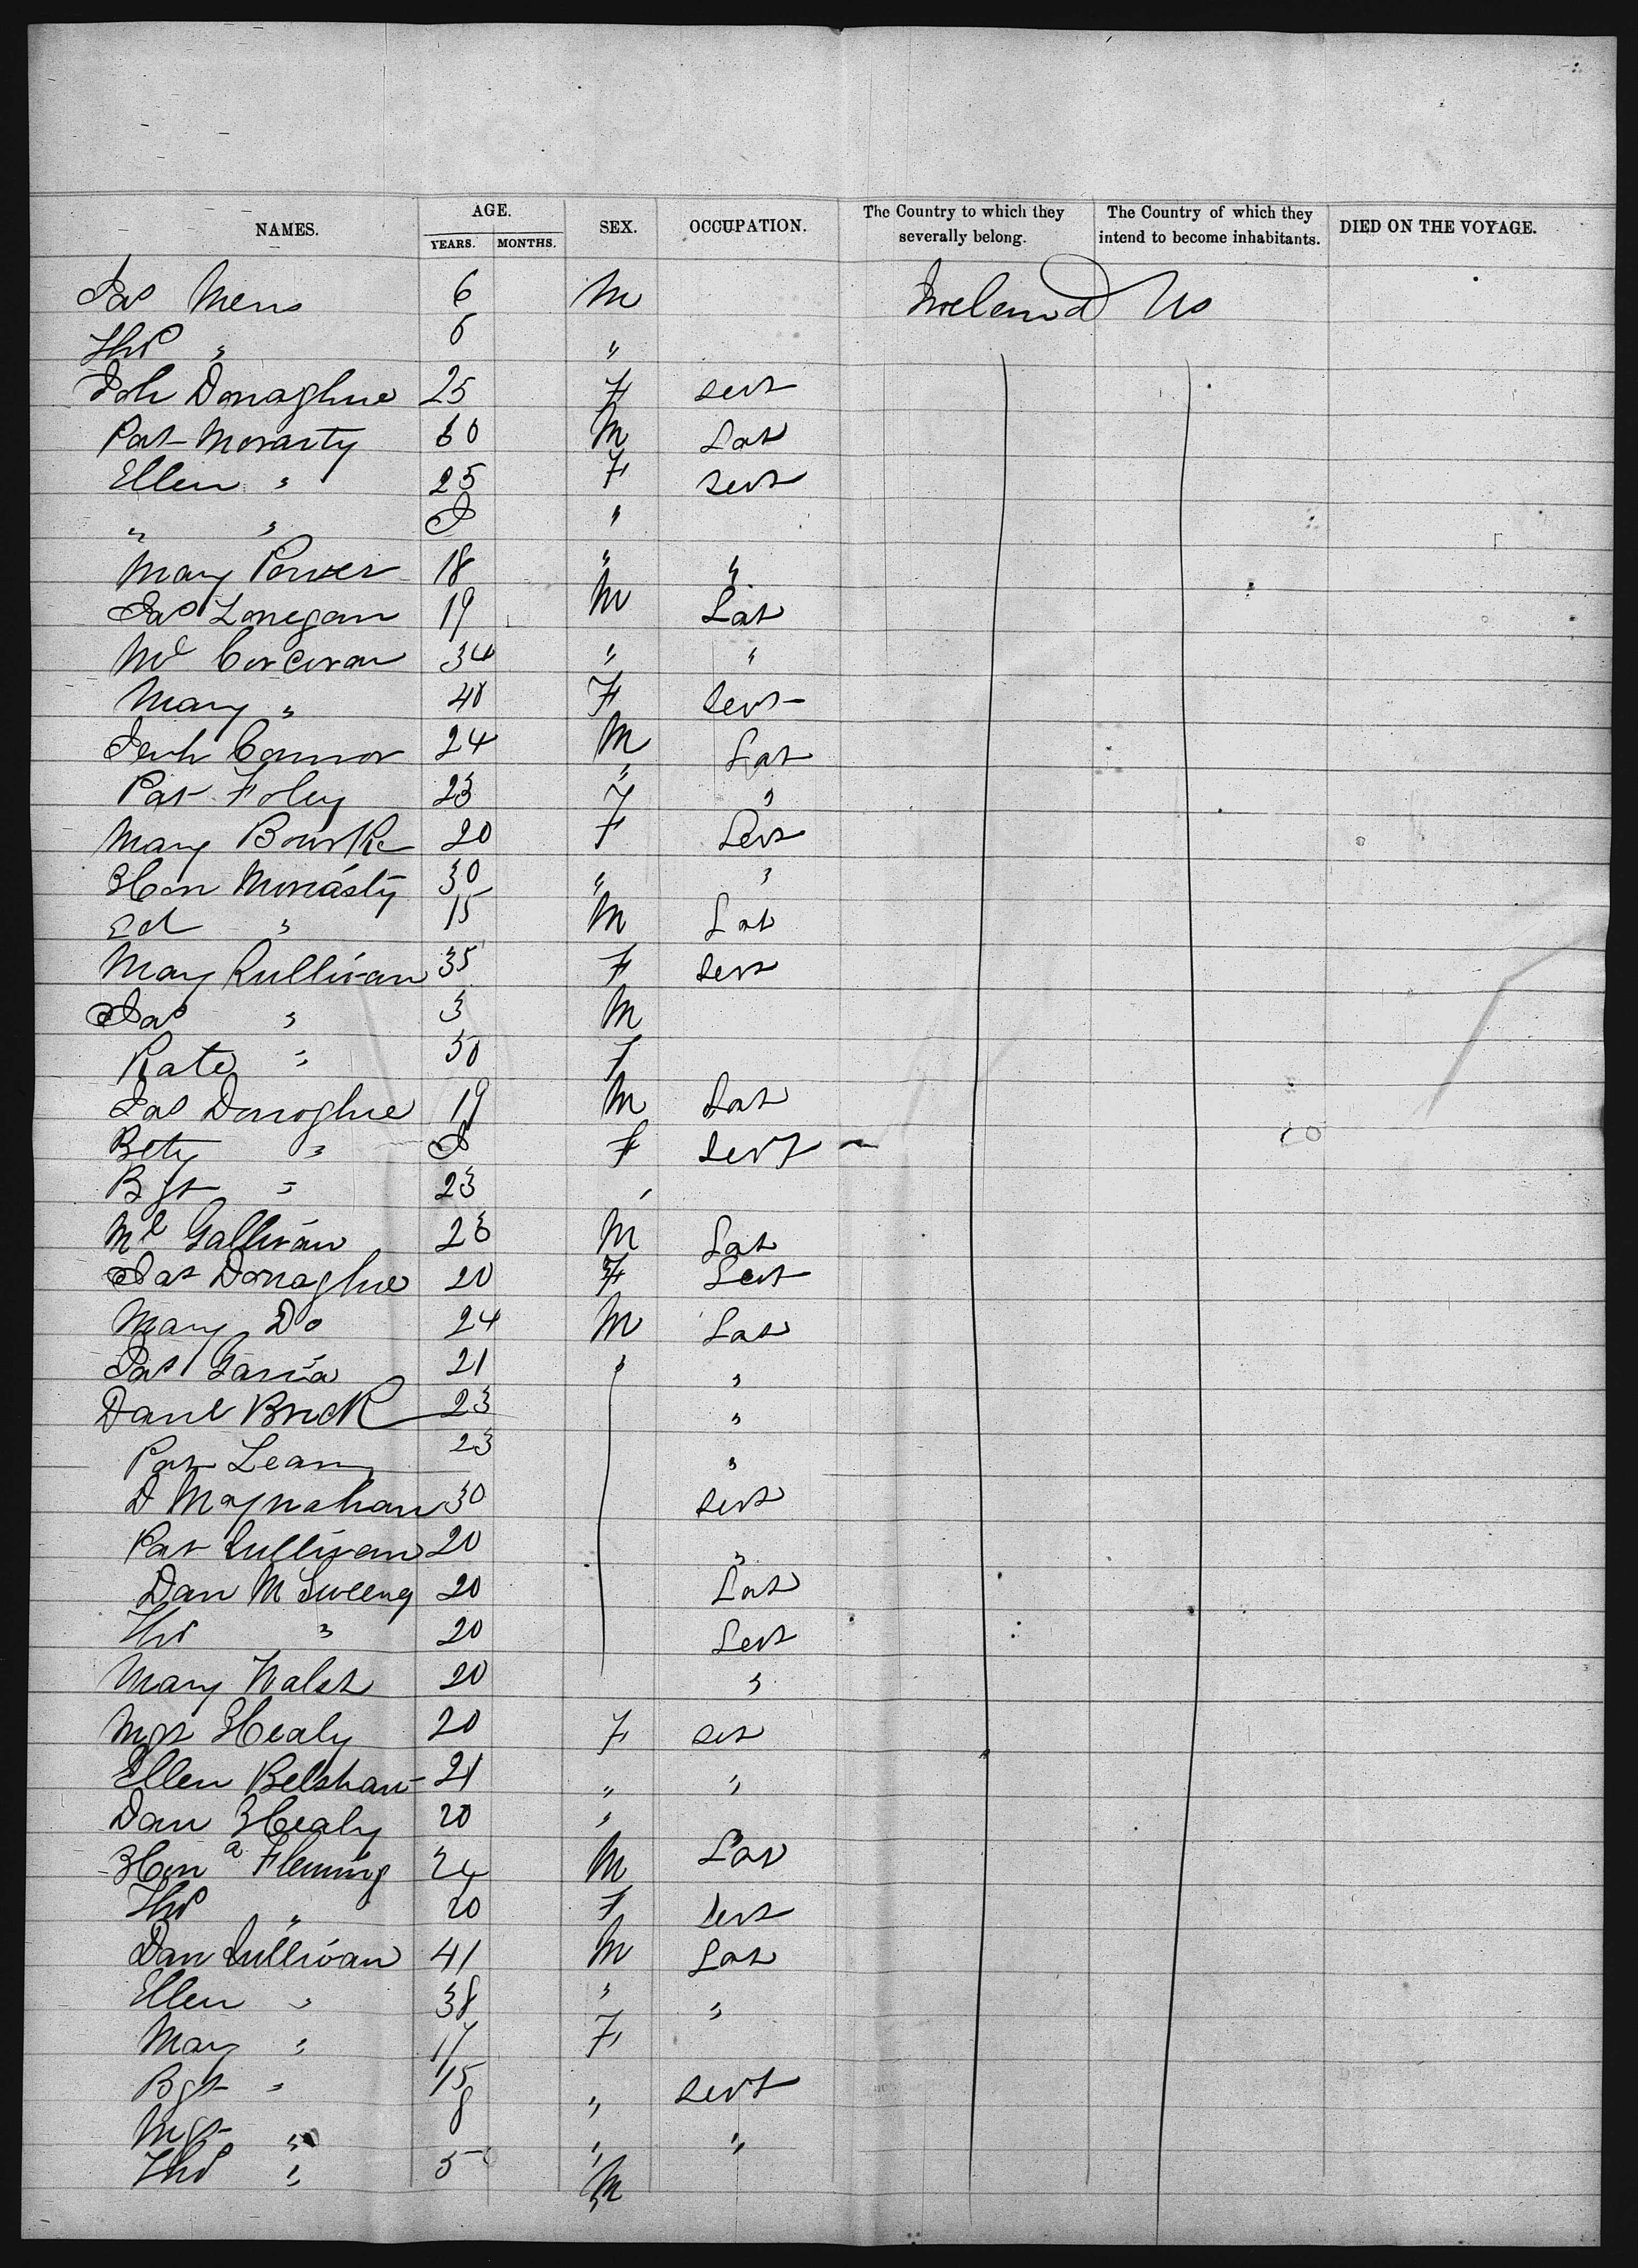 NAMES. AGE. YEARS. MONTHS. SEX. OCCUPATION. The Country to which they severally belong. The Country of which they intend to become inhabitants. DIED ON THE VOYAGE.
Jas 6 M Ireland Us
Ths " 6 "
Joh Donaghue 25 F Servt
Pat Morarty 60 M Lab
Ellen " 25 F Servt
" " "
Mary Power 18 " "
Jas Lonegan 19 M Lab
Ml Corcoran 34 " "
Mary " 40 F Servt
Jerh Connor 24 M Lab
Pat Foley 23 " "
Mary Bourke 20 F Servt
Hon Moriasty 30 " "
Ed " 15 M Lab
Mary Sullivan 35 F Servt
Jas " 3 M
Kate " 50 F
Jas Donoghue 19 M Lab
Bety " F Servt
Bgt " 23 "
Ml Gallivan 23 M Lab
Jas Donaghue 20 F Servt
Mary Do 24 M Lab
Pat 21 " "
Danl Brick 23 "
Pat Leary 23 "
D Moynahan 30 Servt
Pat Sullivan 20 "
Dan M Sweeny 20 Lab
Ths " 20 Servt
Mary Walsh 20 "
Mgt Healy 20 F Ser
Ellen Belshaw 21 " "
Dan Healy 20 "
Hona Fleming 24 M Lab
Ths " 20 F Servt
Dan Sullivan 41 M Lab
Ellen " 38 " "
Mary " 17 F
Bgt " 15 " Servt
Mgt " 8 " "
Ths " 5 M